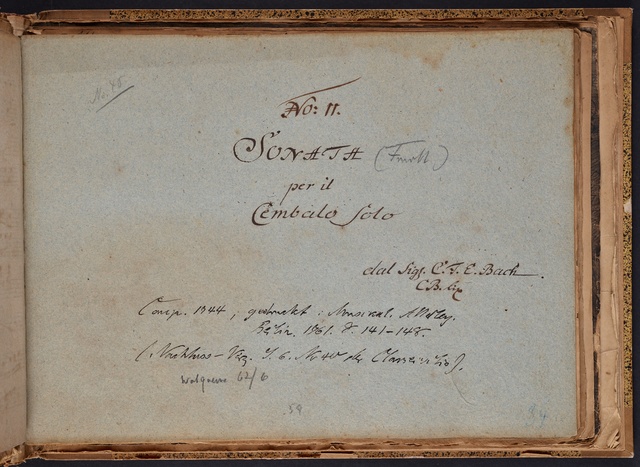 No. 45
No: 11.
SONATA (Fmoll)
per il
Cembalo Solo
dal Sigr. C. F. E. Bach.
Comp. 1744, gedruckt: Musical. Allerley.
Berlin. 1761. S. 141-148.
(Nachlass-Verz. S. 6. No 40 der Clavier
Wotquenne 62/6
59